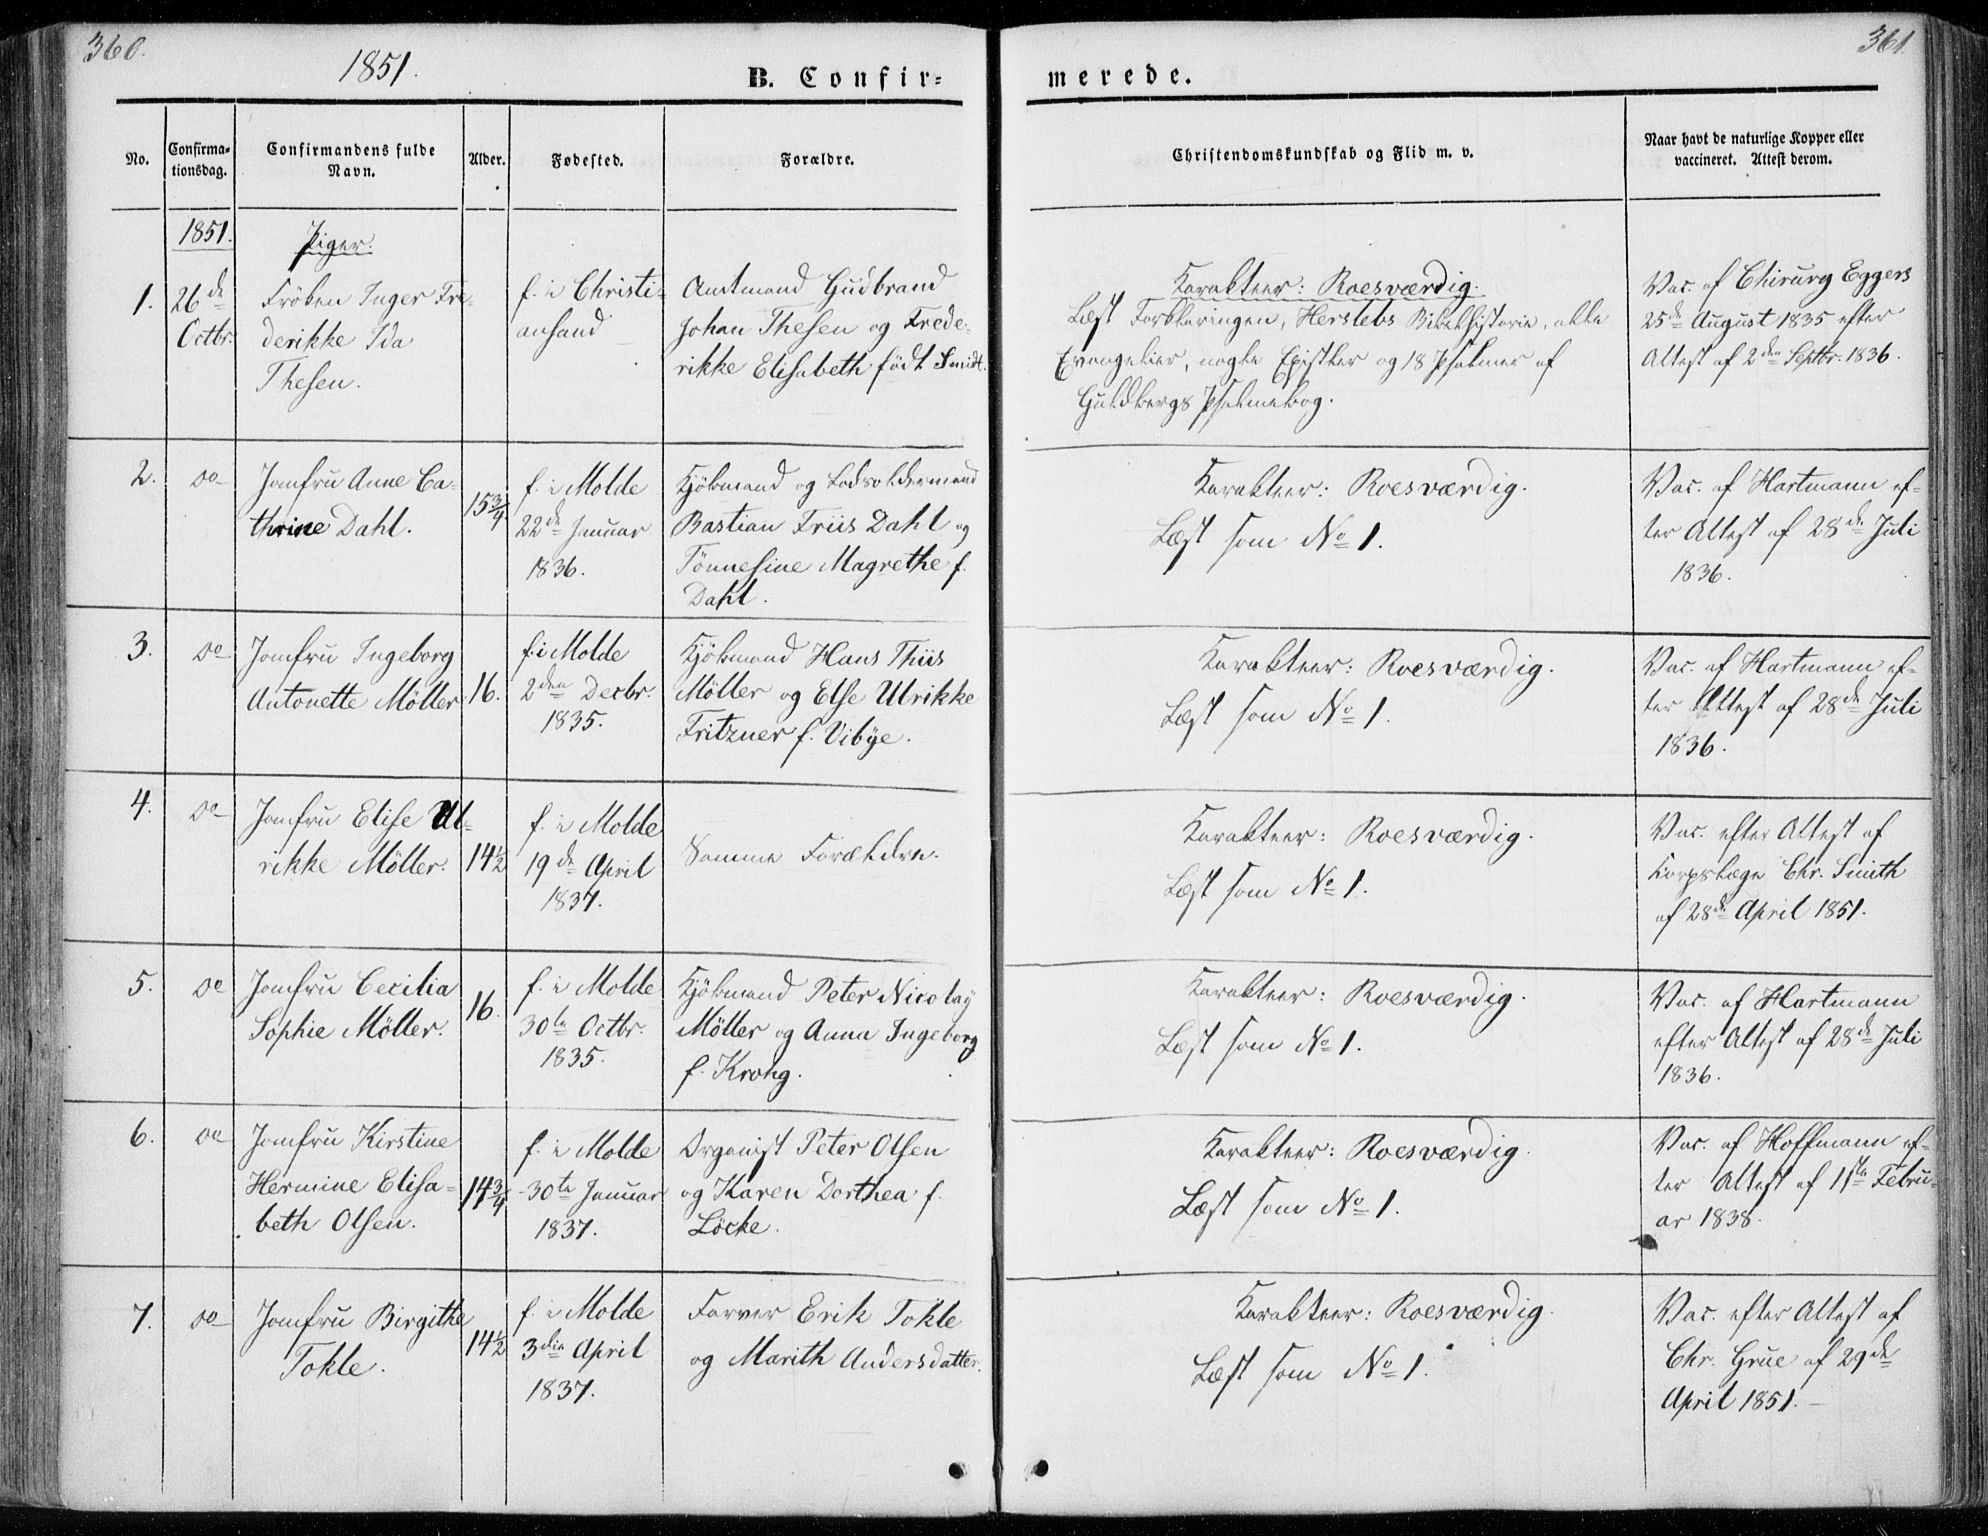 360.
1851.
B. Confir=
No.
Confirma=
tionsdag.
Confirmandens fulde
Navn.
Alder.
Fødested.
Forældre.
1851.
Piger.
1.
26de
Octbr.
Fröken Inger Fre-
derikke Ida
Thesen.
f. i Christi-
ansand
Amtmand Gudbrand
Johan Thesen og Frede-
rikke Elisabeth født Smidt.
2.
do
Jomfru Anne Ca-
thrine Dahl.
15 3/4
f. i Molde
22de Januar
1836.
Kjöbmand og Lodsoldermand
Bastian Friis Dahl og
Tönnesine Magrethe f.
Dahl.
3.
do
Jomfru Ingeborg
Antonette Möller
16.
f. i Molde
2den Decbr.
1835.
Kjöbmand Hans Thiis
Möller og Else Ulrikke
Fritzner f. Vibye.
4.
do
Jomfru Elise Ul-
rikke Möller.
14 1/2
f. i Molde
19de April
1837.
Samme Forældre.
5.
do
Jomfru Cecilia
Sophie Möller.
16.
f. i Molde
30te Octbr.
1835.
Kjöbmand Peter Nicolay
Möller og Anna Ingeborg
f. Krohg.
6.
do
Jomfru Kirstine
Hermine Elisa-
beth Olsen.
14 3/4
f. i Molde
30te Januar
1837.
Organist Peter Olsen
og Karen Dorthea f.
Löcke.
7.
do
Jomfru Birgithe
Tokle.
14 1/2
f. i Molde
3die April
1837.
Farver Erik Tokle
og Marith Andersdatter.
361.
merede.
Christendomskundskab og Flid m. v.
Naar havt de naturlige Kopper eller
vaccineret. Attest derom.
Karakteer: Roesværdig.
Læst Forklaringen, Herslebs Bibelhistorie, alle
Evangelier, nogle Epistler og 18 Psalmer af
Guldbergs Psalmebog.
Vac. af Chirurg Eggers
25de August 1835 efter
Attest af 2den Septbr. 1836.
Karakteer: Roesværdig.
Læst som No 1.
Vac. af Hartmann ef-
ter Attest af 28de Juli
1836.
Karakteer: Roesværdig.
Læst som No 1.
Vac. af Hartmann ef-
ter Attest af 28de Juli
1836.
Karakteer: Roesværdig.
Læst som No 1.
Vac. efter Attest af
Korpslæge Chr. Smith
af 28de April 1851.
Karakteer: Roesværdig.
Læst som No 1.
Vac. af Hartmann
efter Attest af 28de Juli
1836.
Karakteer: Roesværdig.
Læst som No 1.
Vac. af Hoffmann ef-
ter Attest af 11te Febru-
ar 1838.
Karakteer: Roesværdig.
Læst som No 1.
Vac. efter Attest af
Chr. Grue af 29de
April 1851.